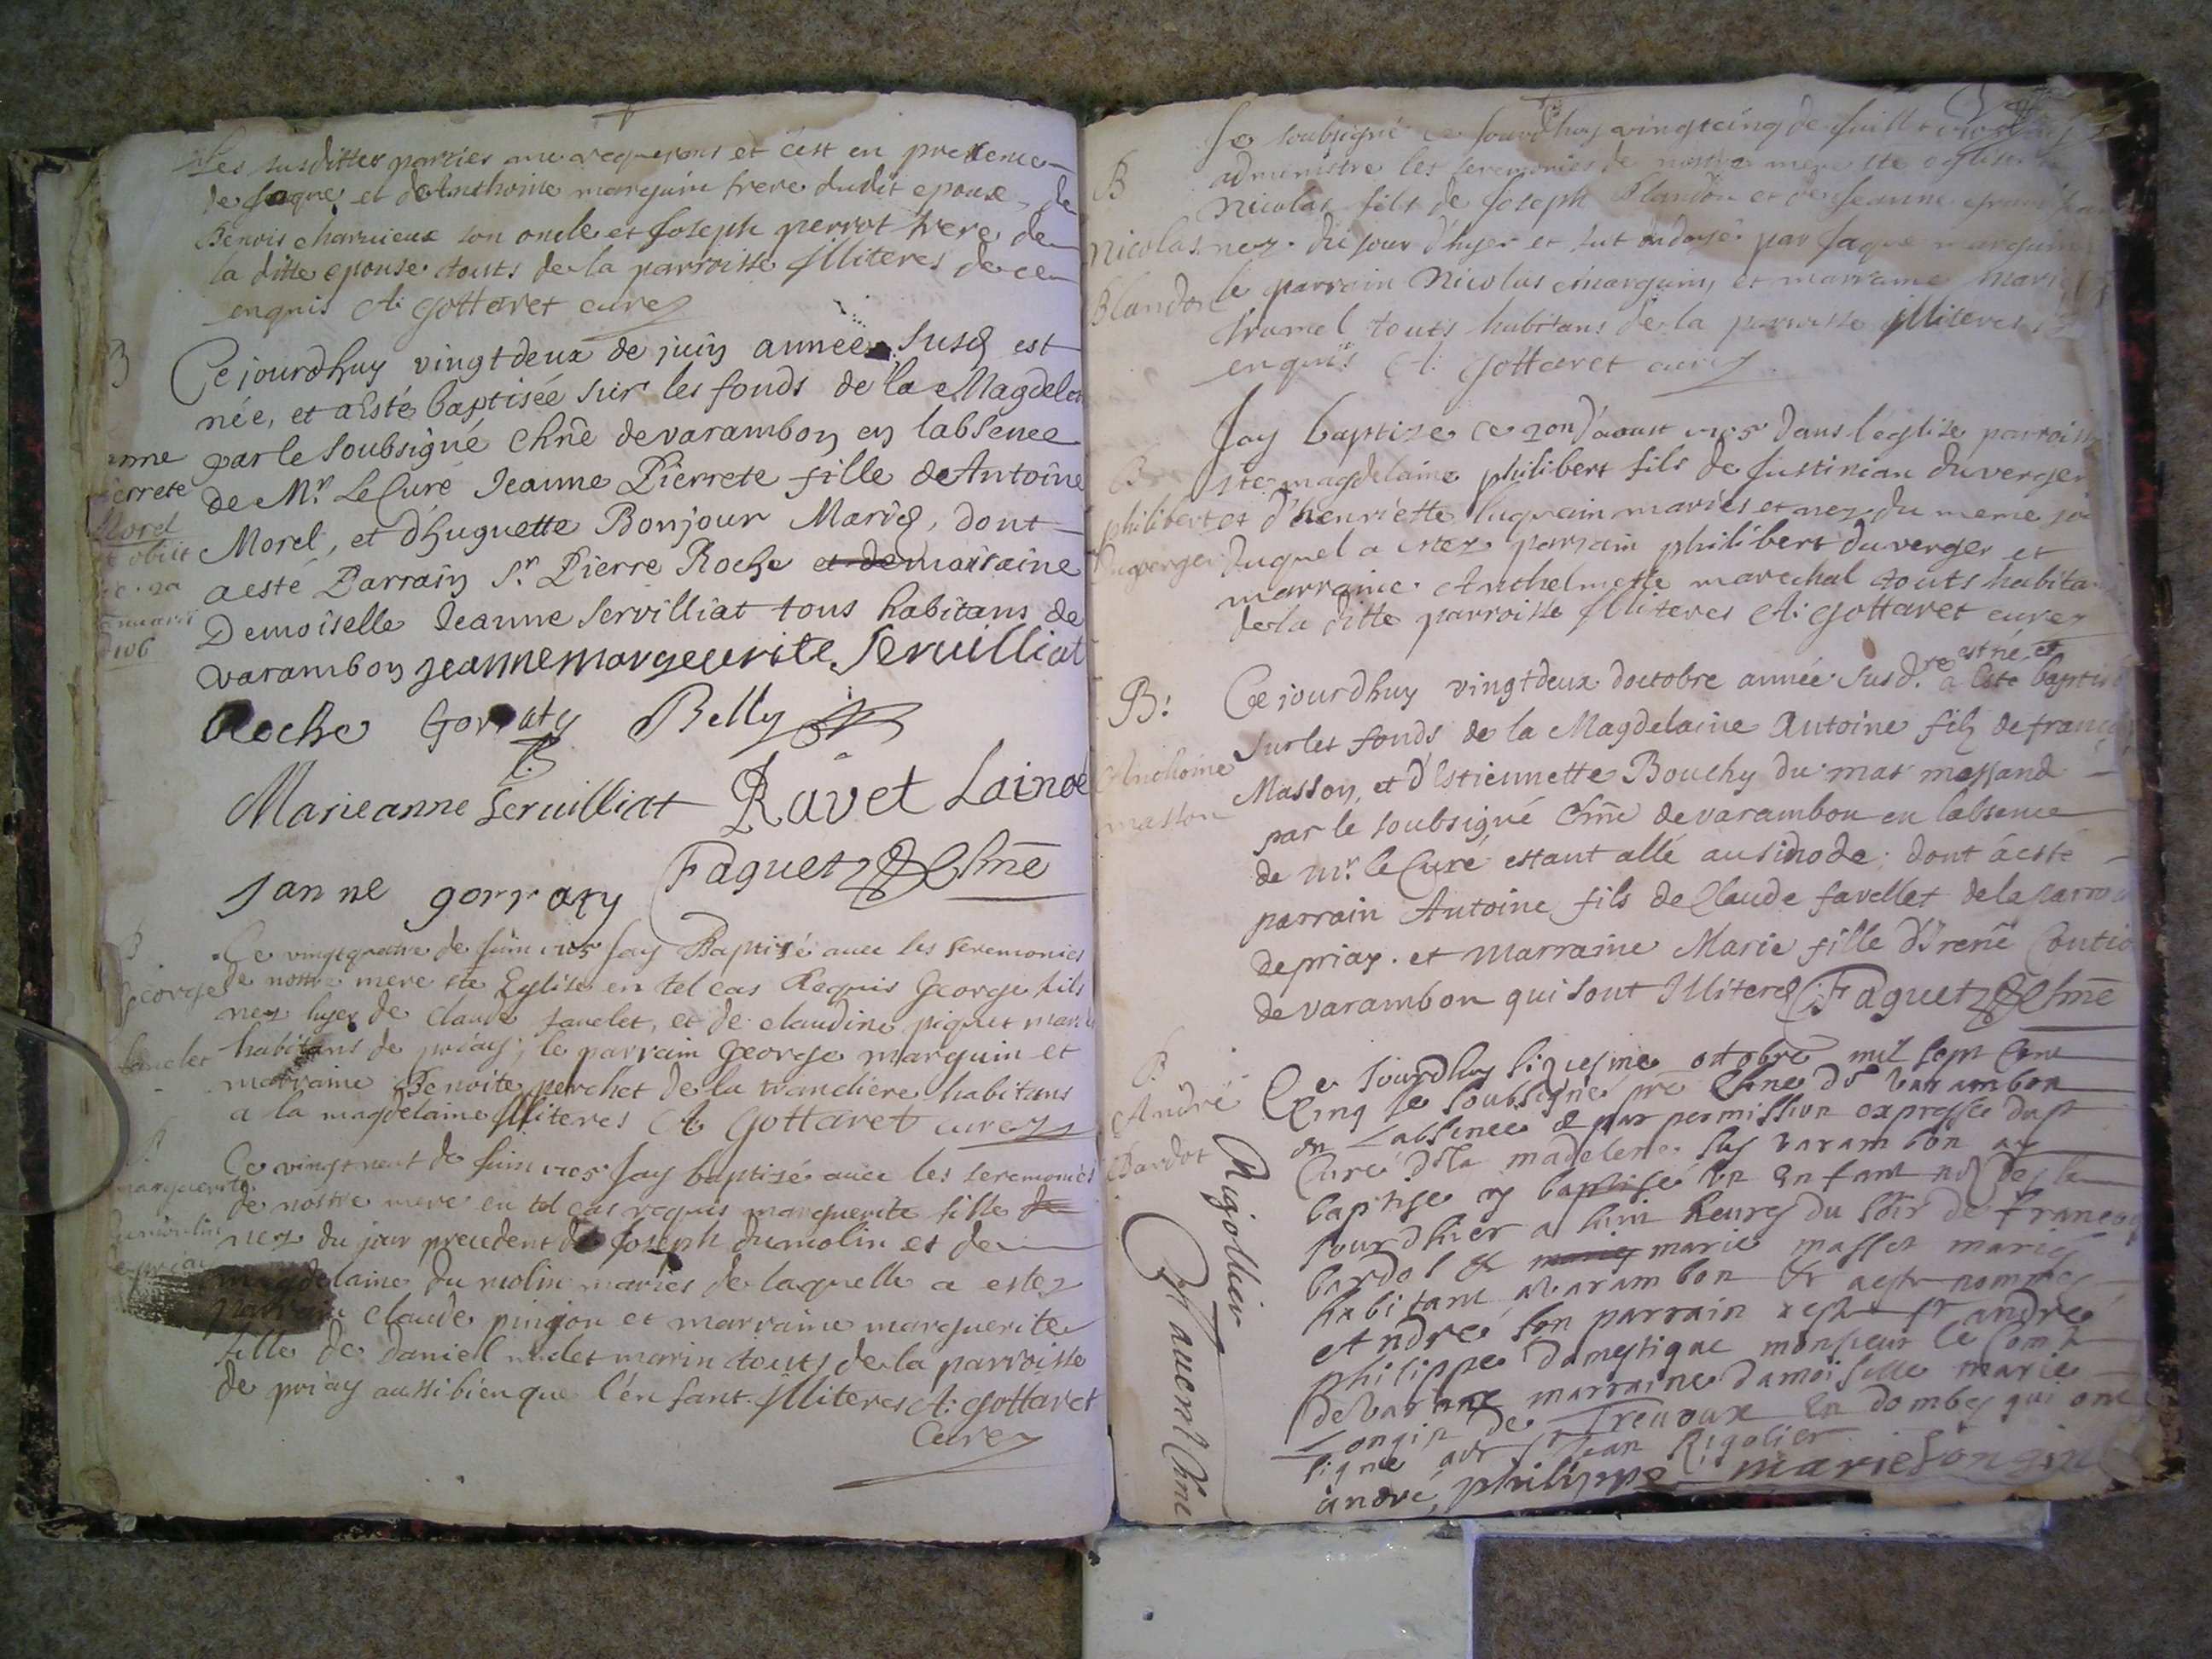 Les susdittes parties me requerons et c'est en presence
de Jaque et de Anthoine marguin frere dudit epoux, de
Benois charuieux son oncle et Joseph perrot frere de
la ditte epouse touts de la parroisse Illiteres de ce
enquis A: Gottaret curez
B
Ce jourdhuy vingt deux de juin année susd est
née, et a esté baptisée sur les fonds de la Magdelen
par le soubsigné chñe de varambon en labsence
de Mr. Le Curé Jeanne Pierrete fille de Antoine
Morel, et d'huguette Bonjour Mariés, dont
a esté Parrain Sr. Pierre Roche et de marraine
Demoiselle Jeanne Servilliat tous habitans de
varambon jeanne margeurite Seruilliat
anne
ierrete
Morel
obiit
Roche Gorraty Belly
Marieanne Seruilliat Ravet Lainé
Janne gorraty Faguet Chñe
B
George
fauelet
Ce vingtquatre de Juin 1705 Jay Baptisé auec les seremonies
de nostre mere ste Eglise en tel cas Requis George fils
nez hyer de Claude fauelet, et de claudine piquet mariés
habitans de priay; le parrain George marguin et
marraine Benoite perchet de la trancliere habitans
a la magdelaine Illiteres A: Gottaret curez
B
marguerite
dumolin
de priay
Ce vingt neuf de Juin 1705 Jay baptisé auec les seremonies
de nostre mere en tel cas requis marguerite fille de
nez du jour precedent de Joseph dumolin et de
magdelaine du molin mariés de laquelle a estez
parrain claude pinjon et marraine marguerite
fille de Daniel marin touts de la parroisse
de priay aussi bien que l'enfant Illiteres A: Gottaret
Curez
B
Nicolas
Blandon
Je soubsigné ce Jourdhuy vingtcinq de Juillet
administre les seremonies de nostre mere ste eglise
Nicolas fils de Joseph Blandon et de Jeanne
nez du jour d'hyer et fut ondoyé par Jaque marguin
le parrain Nicolas marguin, et marraine Marie
trumel touts habitans de la parroisse Illiteres
enquis A: Gottaret curez
B
philibert
Duverger
Jay baptize ce 2on d'aoust 1705 dans l'eglise parroiss
ste magdelaine philibert fils de Justinian duverger
et d'henriette luquain mariés et nez du meme jo
duquel a estez parrain philibert duverger et
marraine Anthelmette marechal touts habita
de la ditte parroisse Illiteres A: Gottaret curez
B:
Anthoine
masson
est né, et
Ce jourdhuy vingt deux doctobre année susd.te a esté baptisé
sur les fonds de la Magdelaine Antoine filz de françois
Masson, et d'Estiennette Bouchy du mas massand
par le soubsigné Chñe de varambon en labsence
de mr. le Curé estant allé au sinode; dont a esté
parrain Antoine fils de Claude favellet de la parroi
de priay. et Marraine Marie fille d'Irené
de varambon qui sont Illiteres Faguet Chñe
B
André
Bardot
Ce Jourdhuy octobre mil sept Cent
Cinq Je soubsigné pre Chne de varambon
en Labsence & par permission expresse dud
Curé de la madelene sus varambon ay
baptise ay baptisé un Enfant né des le
Jourdhier a huit heures du soir de françois
bardot & marie masset mariés
habitant a varambon & a esté nommé
Andreé son parrain a esté sr andre
philippe domestique monsieur le Comte
de varanne marraine damoiselle marie
Longin de Treuoux En dombes qui ont
signé avec sr Jean Rigolier
andré philippe marie longin
Rigollier